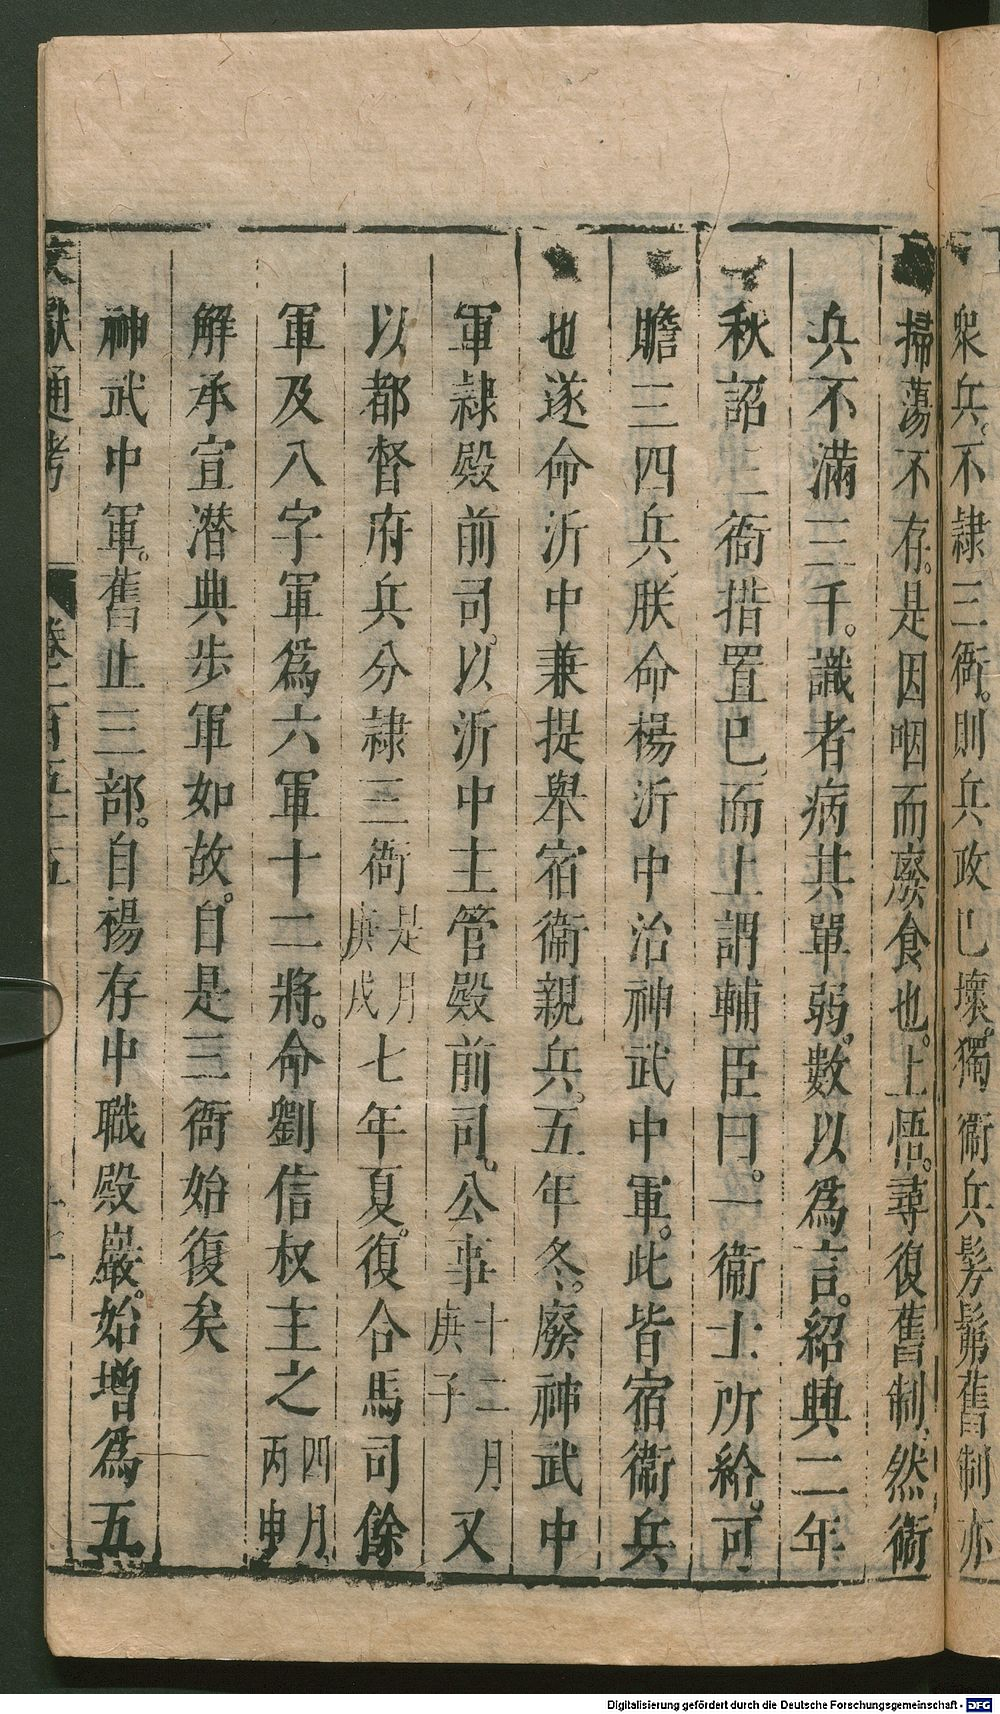 衆兵。不隷三衙。則兵政已壞。獨衞兵髣髴舊制亦
掃蕩不存。是因咽而廢食也。上悟。尋復舊制、然衞
兵不滿三千。識者病其單弱。數以爲言。紹興二年
秋詔三衙措置已。而上謂輔臣曰。一衞士所給。可
贍三四兵。朕命楊沂中治神武中軍。此皆宿衞兵
也遂命沂中兼提舉宿衞親兵。五年冬。廢神武中
軍隷殿前司。以沂中主管殿前司。公事十二月庚子又
以都督府兵分隷三衙是月庚戌七年夏。復合馬司餘
軍及八字軍爲六軍十二將。命劉信叔主之四月丙申
解承宣潜典步軍如故。自是三衙始復矣
神武中軍。舊止三部。自楊存中職殿巖。始增爲五
文獻通考 卷一百五十五 十三
Digitalisierung gefördert durch die Deutsche Forschungsgemeinschaft - DFG